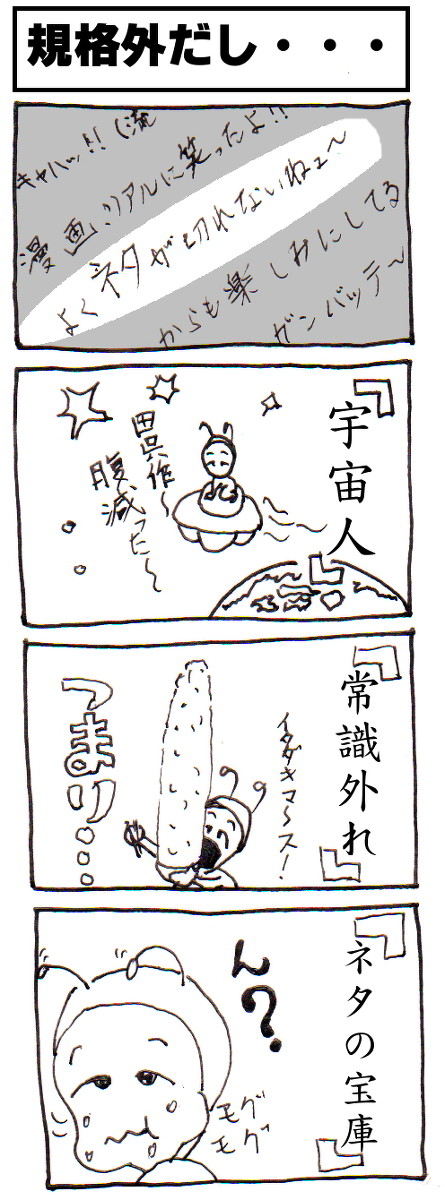 規格外だし・・・
キャハッ!!（流
漫画、リアルに笑ったよ!!
よくネタが切れないねェ〜
からも楽しみにしてる
ガンバッテ〜
『宇宙人』
田吾作〜
腹、減った〜
『常識外れ』
イタダキマ〜ス!
つまり○○○
『ネタの宝庫』
ん?
モグ
モグ